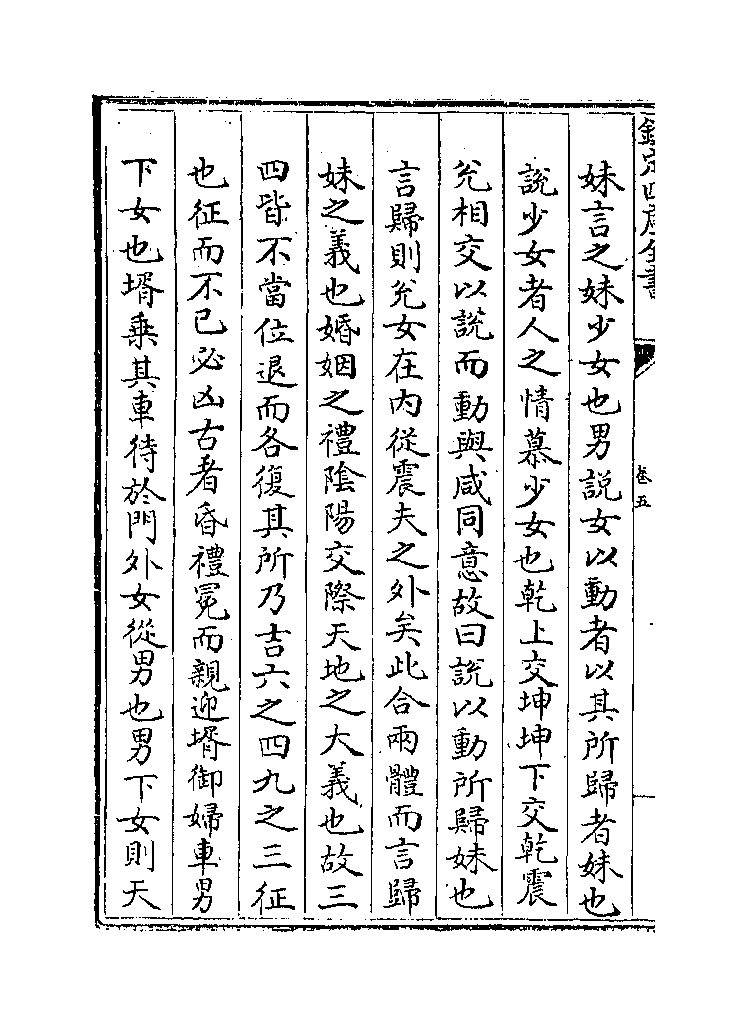 欽定四庫全書
卷五
妹言之妹少女也男説女以動者以其所歸者妹也
説少女者人之情慕少女也乾上交坤坤下交乾震
兊相交以説而動與咸同意故曰説以動所歸妹也
言歸則兊女在内從震夫之外矣此合兩體而言歸
妹之義也婚姻之禮陰陽交際天地之大義也故三
四皆不當位退而各復其所乃吉六之四九之三征
也征而不已必凶古者昏禮冕而親迎壻御婦車男
下女也壻乗其車待於門外女從男也男下女則天